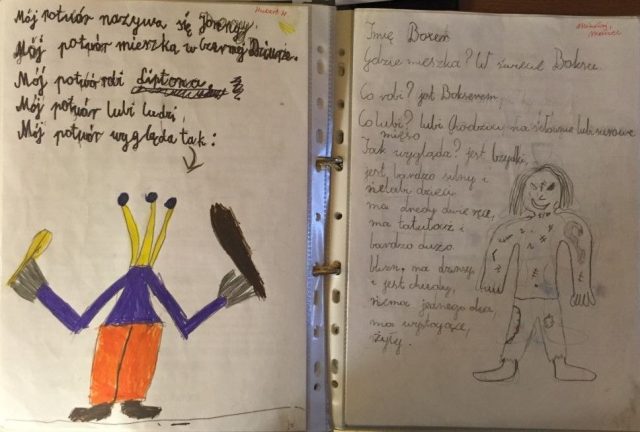 Hubert H.
Mój potwór nazywa się
Mój potwór mieszka w Czarnej Dziurze.
Mój potwór robi
Mój potwór lubi ludzi,
Mój potwór wygląda tak:
Imię Boxeń
Gdzie mieszka? W świecie Boksu
Co robi? jest Bokserem,
Co lubi? lubi chodzić na siłownie lubi surowe
mięso
Jak wygląda? jest brzydki,
jest bardzo silny i
nielubi dzieci
ma dredy dwie ręce,
ma tatuaż i
bardzo dużo
blizn, ma dziury,
i jest chudy,
niema jednego oka,
ma wystające,
żyły.